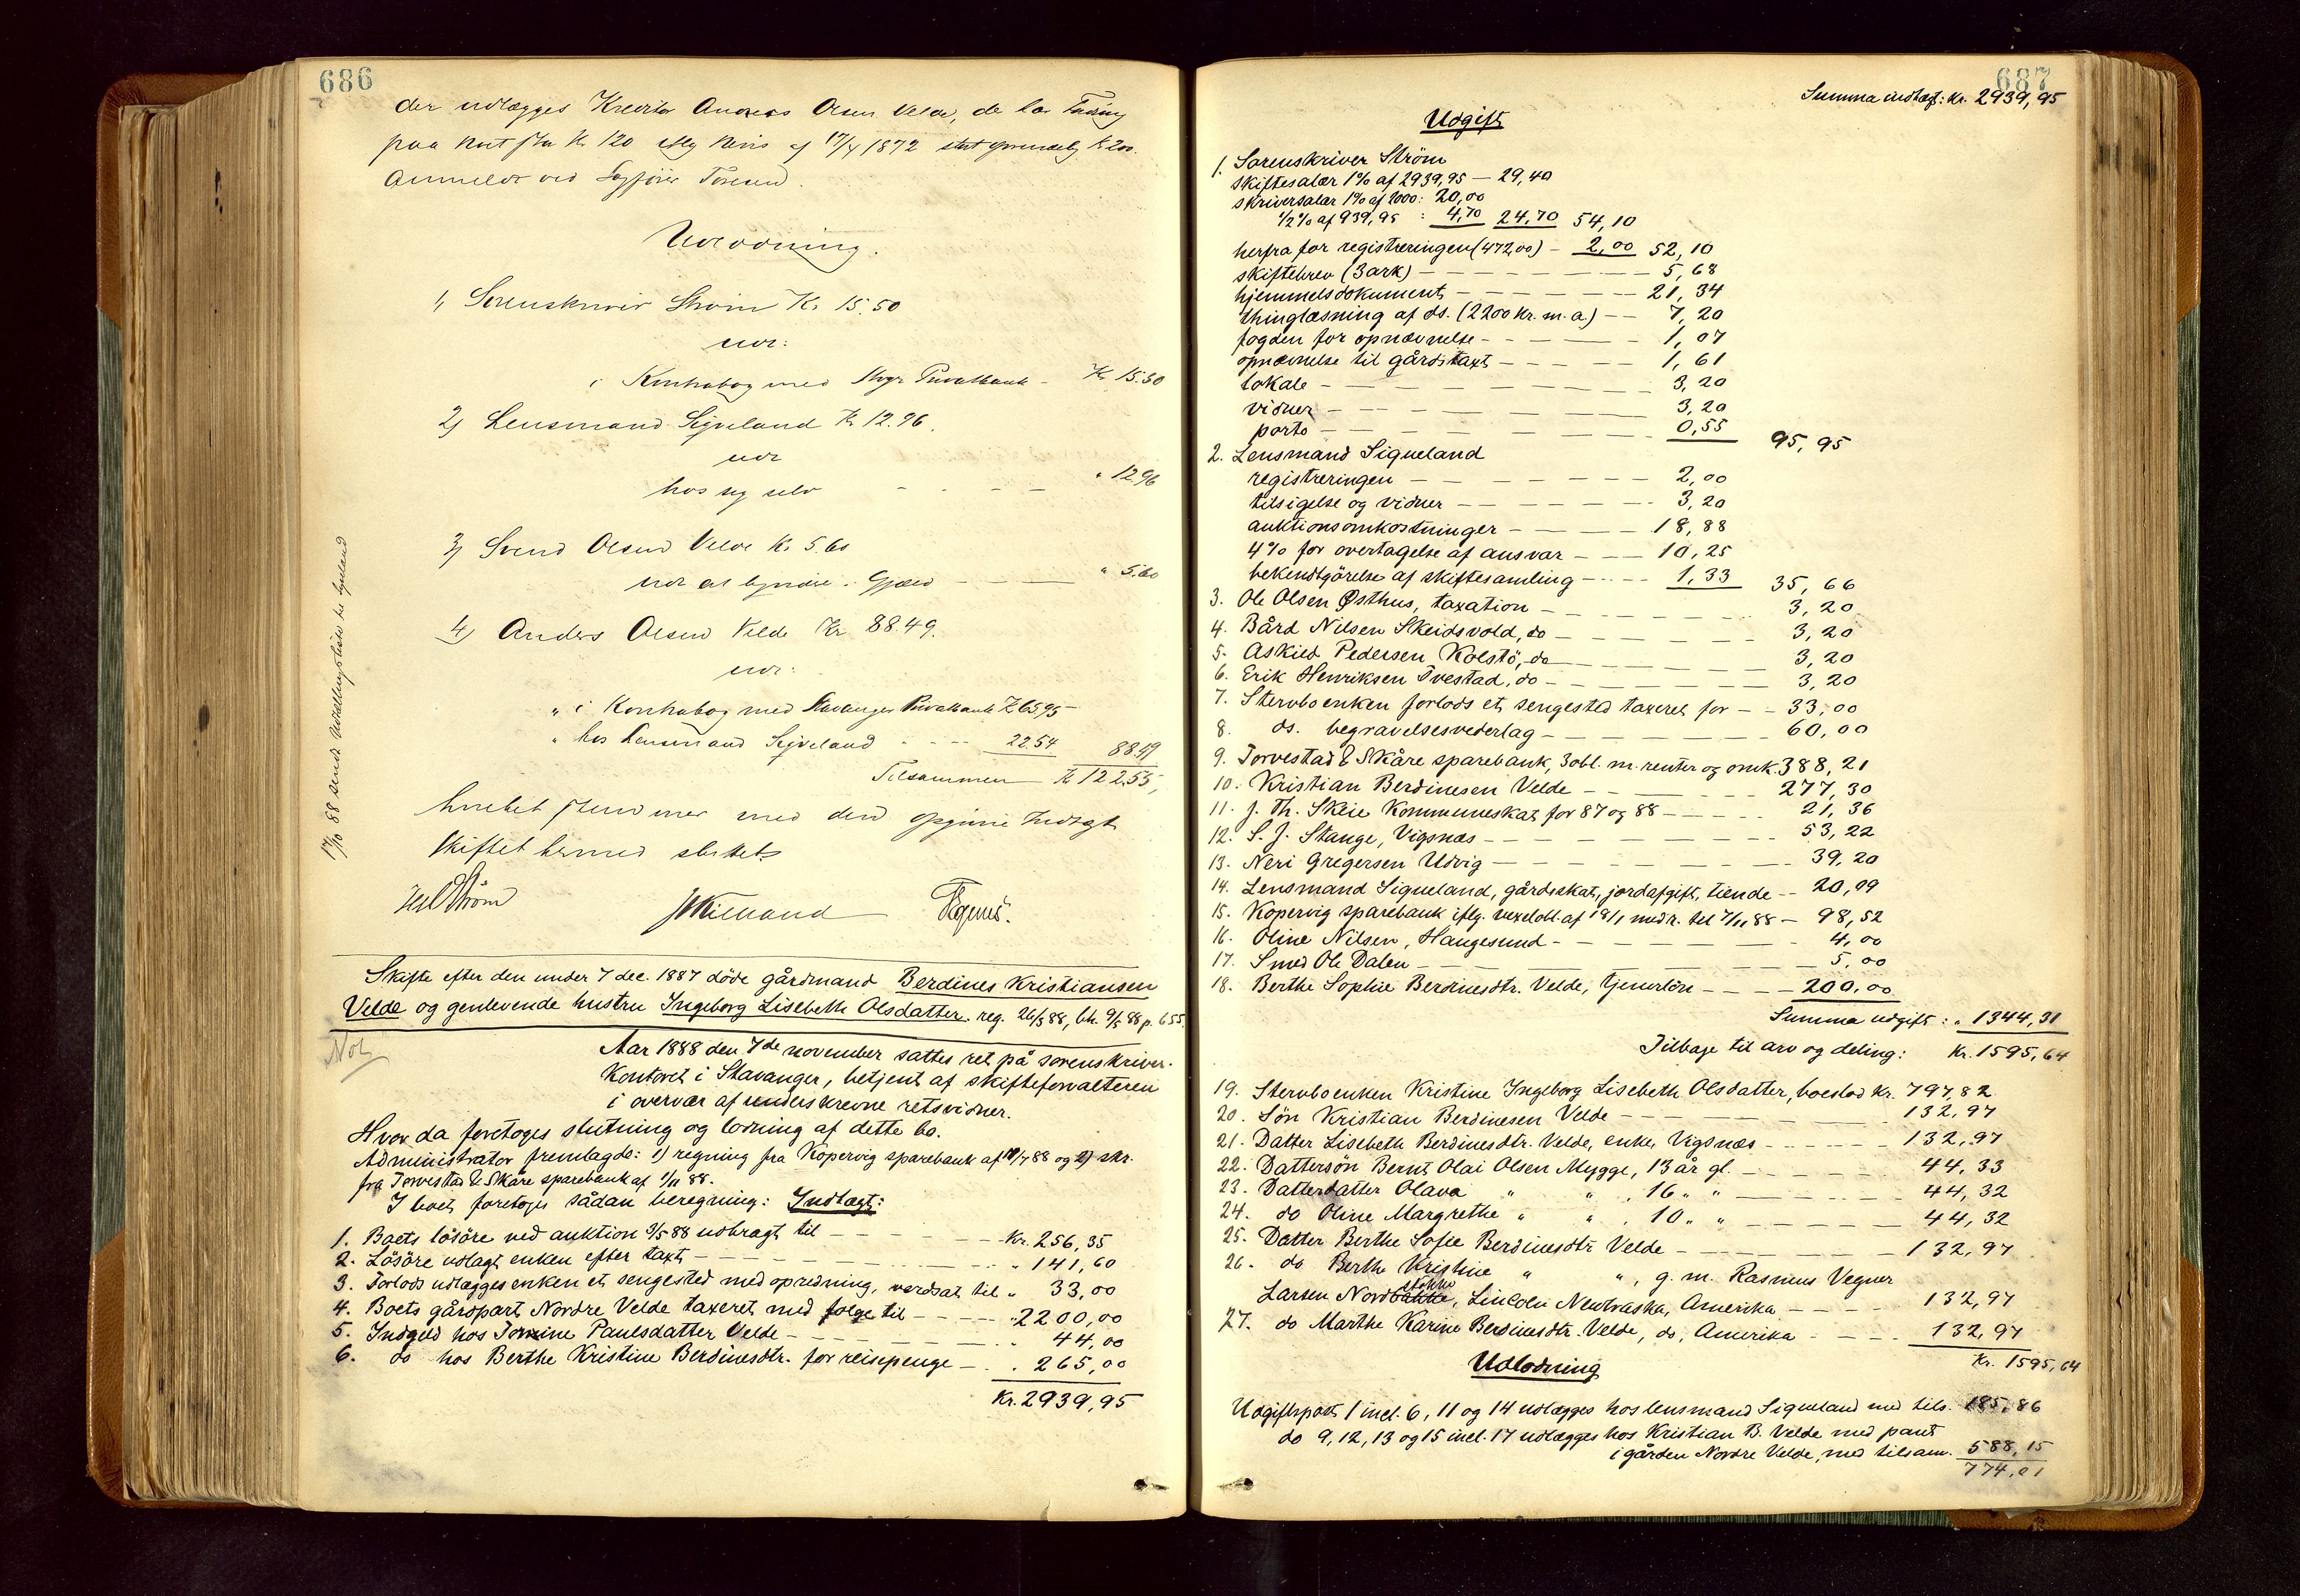 686
der udlægges Kreditor Anders Olsen Velde, de la
paa K. 120 iflg 17/4 1872
anmeldt ved Sagfører
Udlodning.
1, Sorenskriver Strøm Kr. 15.50
udl:
i Kontrabog med Stvgr Privatbank - Kr 15.50
2, Lensmand Sigveland Kr. 12.96.
udl
hos sig selv - - - - " 12.96
3, Svend Olsen Velde Kr. 5.60
Gjæld - - - " 5.60
4, Anders Olsen Velde Kr 88.49.
udl:
" i Kontrabog med Stavanger Privatbank Kr 65,95
" hos Lensmand Sigveland - - - 22.54 88.49
Tilsammen Kr 122.55,
hvilket stemmer med den opgivne Indtægt
Skiftet hermed sluttet
Strøm JKielland
17/10 88 sendt Udlodningsliste til Sigveland
Skifte efter den under 7 dec. 1887 döde gårdmand Berdines Kristiansen
Velde og genlevende hustru Ingeborg Lisebeth Olsdatter. reg. 26/3 88, bh. 9/5 88 p. 655.
Not
Aar 1888 den 7de november sattes ret på sorenskriver-
kontoret i Stavanger, betjent af skifteforvalteren
i overvær af underskrevne retsvidner.
Hvor da foretoges slutning og lodning af dette bo.
Administrator fremlagde: 1) regning fra Kopervig sparebank af 19/7 88 og 2) skr.
fra Torvestad & Skåre sparebank af 1/11 88.
I boet foretoges sådan beregning: Indtægt:
1. Boets lösöre ved auktion 3/5 88 udbragt til - - - Kr. 256,35
2. Lösöre udlagt enken efter taxt - - - " 141,60
3. Forlods udlægges enken et sengested med opredning, værdsat til " 33,00
4. Boets gårdpart Nordre Velde taxeret med følge til - - - 2200,00
5. Indgæld hos Tomine Paulsdatter Velde - - - " 44,00
6. do hos Berthe Kristine Berdinesdtr. for reisepenge - . . 265,00
Kr. 2939,95
687
Summa indtægt: Kr. 2939,95
Udgift
1. Sorenskriver Ström
skiftesalær 1% af 2939,95 - 29,40
skriversalær 1% af 2000: 20,00
1/2% af 939,95 : 4,70 24,70 54,10
herfra for registreringen (472,00) - 2,00 52,10
skiftebrev (3 ark) - - - 5,68
hjemmelsdokument - - - 21,34
thinglæsning af ds. (2200 kr. m. a.) - - 7,20
fogden for opnævnelse - - - 1,07
opnævnelse til gårdstaxt - - - 1,61
lokale - - - 3,20
vidner - - - 3,20
porto - - - 0,55 95,95
2. Lensmand Sigveland
registreringen - - - 2,00
tilsigelse og vidner - - - 3,20
auktionsomkostninger - - - 18,88
4% for overtagelse af ansvar - - - 10,25
bekendtgörelse af skiftesamling - - - 1,33 35,66
3. Ole Olsen Østhus, taxation - - - 3,20
4. Bård Nilsen Skeidsvold, do - - - 3,20
5. Askild Pedersen Kolstö, do - - - 3,20
6. Erik Henriksen Tvestad, do - - - 3,20
7. Stervboenken forlods et sengested taxeret for - - 33,00
8. ds. begravelsesvederlag - - - 60,00
9. Torvestad & Skåre sparebank, 3 obl. m. renter og omk. 388,21
10. Kristian Berdinesen Velde - - - 277,30
11. J. Th. Skeie Kommuneskat for 87 og 88 - - - 21,36
12. S. J. Stange, Vigsnæs - - - 53,22
13. Neri Gregersen Udvig - - - 39,20
14. Lensmand Sigveland, gårdsskat, jordafgift, tiende - - 20,09
15. Kopervig sparebank iflg. vexelobl. af 19/1 med r. til 7/11 88 - 98,52
16. Oline Nilsen, Haugesund - - - 4,00
17. Smed Ole Dalen - - - 5,00
18. Berthe Sophie Berdinesdtr. Velde, tjenerlön - - - 200,00
Summa udgift : " 1344,31
Tilbage til arv og deling: Kr. 1595,64
19. Stervboenken Kristine Ingeborg Lisebeth Olsdatter, boeslod Kr. 797,82
20. Sön Kristian Berdinesen Velde - - - 132,97
21. Datter Lisebeth Berdinesdtr. Velde, enke, Vigsnæs - - - 132,97
22. Dattersön Bernt Olai Olsen Mygge, 13 år gl. - - - 44,33
23. Datterdatter Olava " " , 16 " " - - - 44,32
24. do Oline Margrethe " " , 10 " " - - - 44,32
25. Datter Berthe Sofie Berdinesdtr Velde - - - 132,97
26. do Berthe Kristine " " , g. m. Rasmus Vegner
Larsen Nordstokke, Lincoln Newbraska, Amerika - - - 132,97
27. do Marthe Karine Berdinesdtr. Velde, do, Amerika - - - 132,97
Kr. 1595,64
Udlodning
Udgiftspost 1 incl. 6, 11 og 14 udlægges hos lensmand Sigveland med tils. 185,86
do 9, 12, 13 og 15 incl. 17 udlægges hos Kristian B. Velde med pant
i gården Nordre Velde, med tilsam. 588,15
774,01